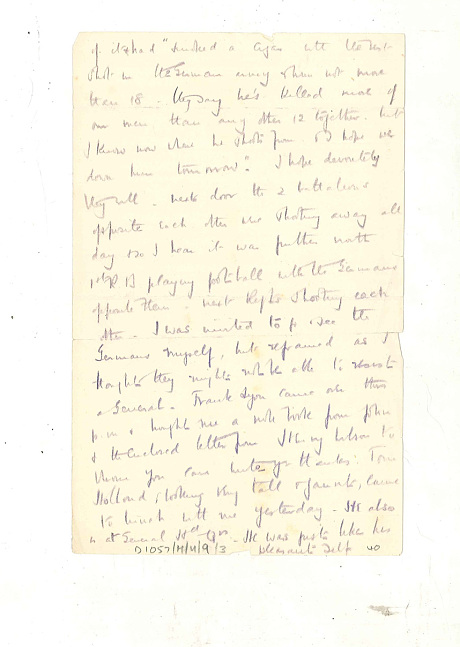 of it & had "smoked a cigar with the best
shot in the German army then not more
than 18. They say he's killed more of
our men than any other 12 together. but
I know now where he shoots from & I hope we
down him tomorrow". I hope devoutely
they will. next door the 2 battalions
opposite each other were shooting away all
day & so I hear it was further north
1st R B playing football with the Germans
opposite them - next Regts shooting each
other - I was invited to go & see the
Germans myself, but refrained as I
thought they might not be able to resist
a General. Frank Lyon came over this
p.m. & brought me a note from John
& the enclosed letter from
whom you can write yr thanks: Tom
Holland looking very tall & gaunt, came
to lunch with me yesterday - He also
is at General Hd Qrs - He was just like his
pleasant self
D1057/M/4/9/3